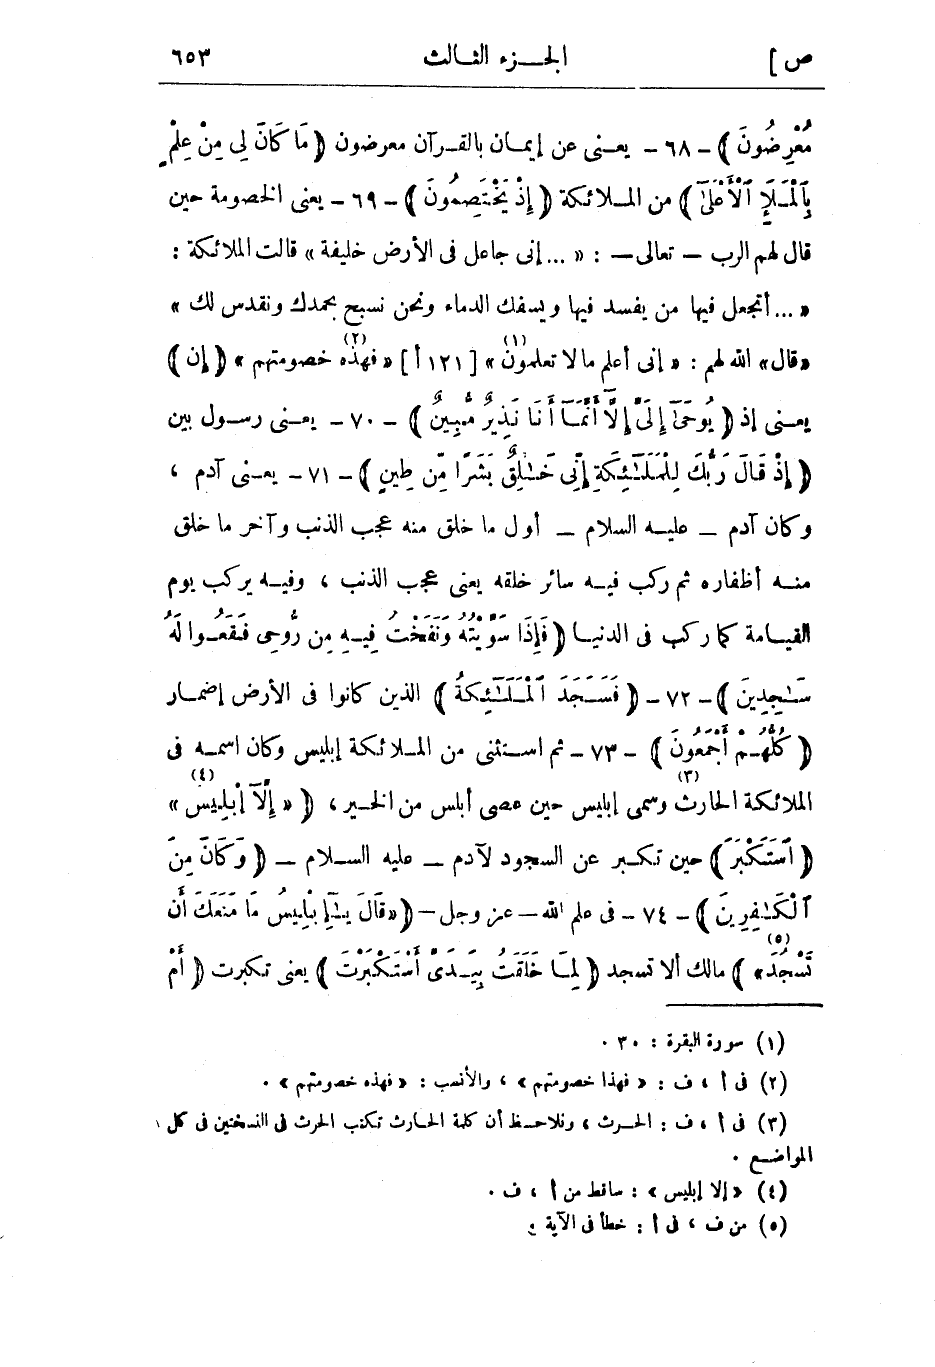 ص ] الجزء الثالث ٦٥٣
مُعْرِضُونَ ) - ٦٨ - يعنى عن إيمان بالقرآن معرضون ( مَا كَانَ لِى مِنْ عِلْمٍ
بِٱلْمَلَإِ ٱلْأَعْلَىٰٓ ) من الملائكة ( إِذْ يَخْتَصِمُونَ ) - ٦٩ - يعنى الخصومة حين
قال لهم الرب - تعالى - : « ... إنى جاعل فى الأرض خليفة » قالت الملائكة :
« ... أتجعل فيها من يفسد فيها ويسفك الدماء ونحن نسبح بحمدك ونقدس لك »
«قال» الله لهم : « إنى أعلم ما لا تعلمون (١) » [ ١٢١ أ ] « فهذه (٢) خصومتهم » ( إن )
يعنى إذ ( يُوحَىٰٓ إِلَىَّ إِلَّآ أَنَّمَآ أَنَا نَذِيرٌ مُّبِينٌ ) - ٧٠ - يعنى رسول بين
( إِذْ قَالَ رَبُّكَ لِلْمَلَـٰٓئِكَةِ إِنِّى خَـٰلِقٌ بَشَرًا مِّن طِينٍ ) - ٧١ - يعنى آدم ،
وكان آدم - عليه السلام - أول ما خلق منه عجب الذنب وآخر ما خلق
منه أظفاره ثم ركب فيه سائر خلقه يعنى عجب الذنب ، وفيه يركب يوم
القيامة كما ركب فى الدنيا ( فَإِذَا سَوَّيْتُهُ وَنَفَخْتُ فِيهِ مِن رُّوحِى فَقَعُوا لَهُ
سَـٰجِدِينَ ) - ٧٢ - ( فَسَجَدَ ٱلْمَلَـٰٓئِكَةُ ) الذين كانوا فى الأرض إضمار
( كُلُّهُمْ أَجْمَعُونَ ) - ٧٣ - ثم استثنى من الملائكة إبليس وكان اسمه فى
الملائكة الحارث (٣) وسمى إبليس حين عصى أبلس من الخير ، ( « إِلَّآ إِبْلِيسَ (٤) »
( ٱسْتَكْبَرَ ) حين تكبر عن السجود لآدم - عليه السلام - ( وَكَانَ مِنَ
ٱلْكَـٰفِرِينَ ) - ٧٤ - فى علم الله - عز وجل - ( « قَالَ يَـٰٓإِبْلِيسُ مَا مَنَعَكَ أَن
تَسْجُدَ (٥) » ) مالك ألا تسجد ( لِمَا خَلَقْتُ بِيَدَىَّ أَسْتَكْبَرْتَ ) يعنى تكبرت ( أَمْ
(١) سورة البقرة : ٣٠ .
(٢) فى أ ، ف : « فهذا خصومتهم » ، والأنسب : « فهذه خصومتهم » .
(٣) فى أ ، ف : الحرث ، ونلاحظ أن كلمة الحارث تكتب الحرث فى النسختين فى كل
المواضع .
(٤) « إلا إبليس » : ساقط من أ ، ف .
(٥) من ف ، فى أ : خطأ فى الآية .